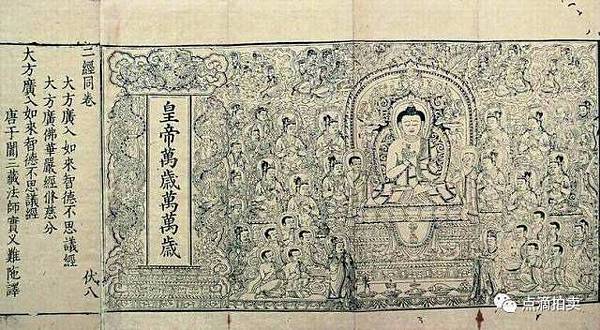 皇帝萬歲萬萬歲
二經同卷 伏八
大方廣入如來智德不思議經
大方廣佛華嚴經修慈分
大方廣入如來智德不思議經
唐于闐三藏法師實叉難陁譯
点滴拍卖